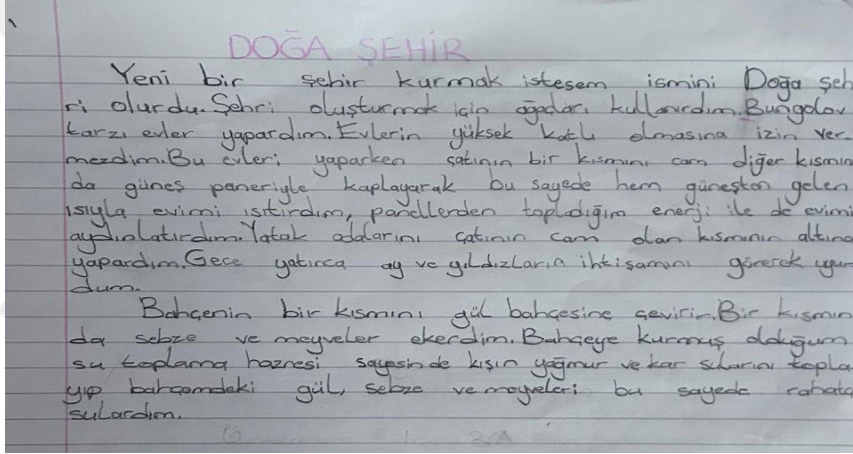 DOĞA ŞEHİR
Yeni bir şehir kurmak istesem ismini Doğa Şeh
ri olurdu. Şehri oluşturmak için ağaçları kullanırdım. Bungolov
tarzı evler yapardım. Evlerin yüksek katlı olmasına izin ver-
mezdim. Bu evleri yaparken çatının bir kısmını cam diğer kısmın
da güneş paneriyle kaplayarak bu sayede hem güneşten gelen
ısıyla evimi ısıtırdım, panellerden topladığım enerji ile de evimi
aydınlatırdım. Yatak odalarını çatının cam olan kısmının altına
yapardım. Gece yatınca ay ve yıldızların ihtişamını görerek uyur
dum.
Bahçenin bir kısmını gül bahçesine çevirir. Bir kısmın
da sebze ve meyveler ekerdim. Bahçeye kurmuş olduğum
su toplama haznesi sayesinde kışın yağmur ve kar sularını topla
yıp bahçemdeki gül, sebze ve meyveleri bu sayede rahatç
sulardım.